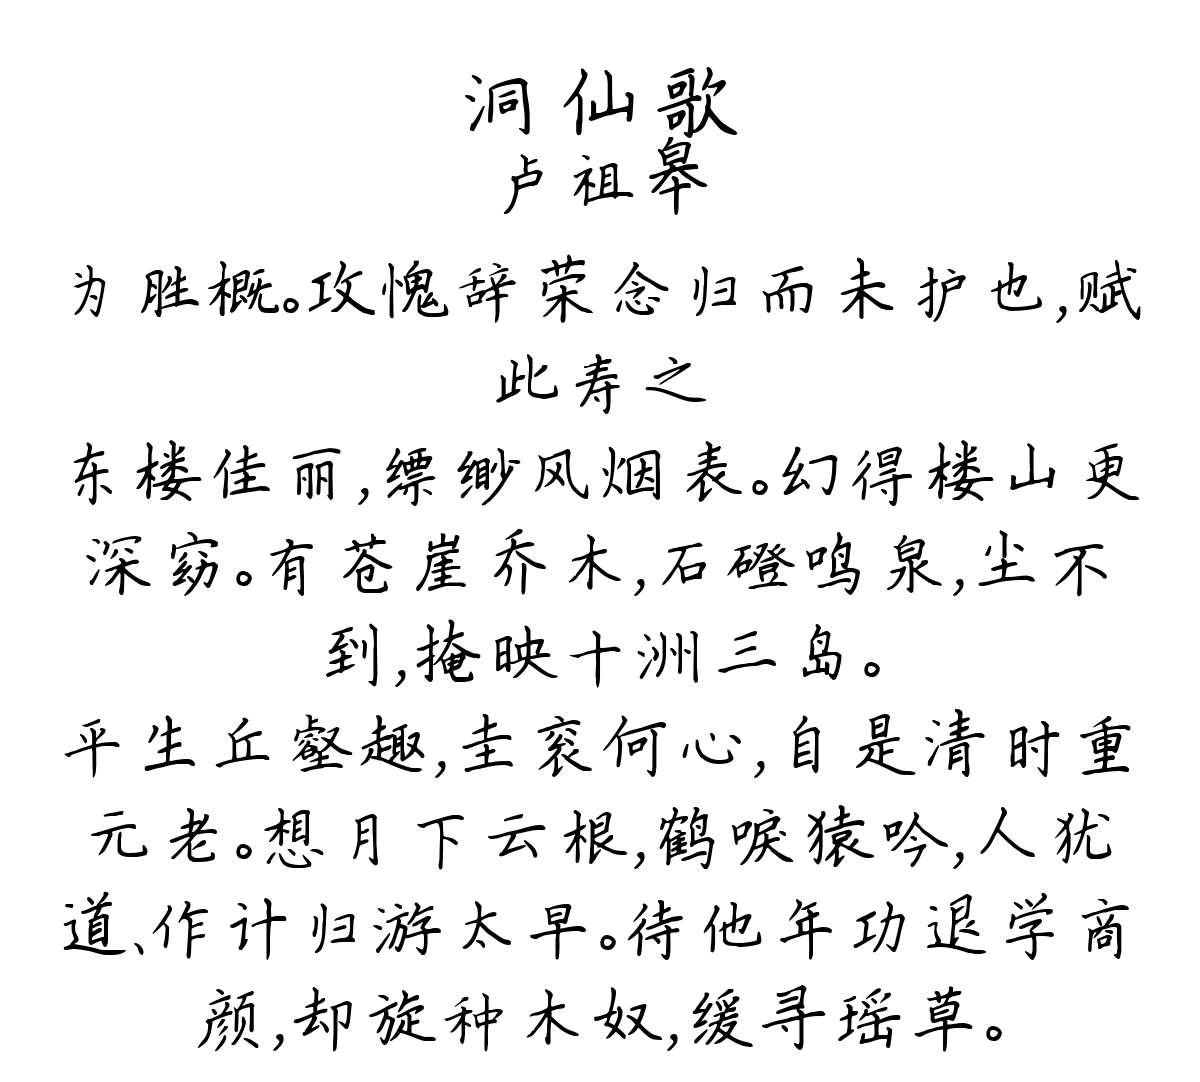 洞仙歌
卢祖皋
为胜概。攻愧辞荣念归而未护也,赋
此寿之
东楼佳丽,缥缈风烟表。幻得楼山更
深窈。有苍崖乔木,石磴鸣泉,尘不
到,掩映十洲三岛。
平生丘壑趣,圭衮何心,自是清时重
元老。想月下云根,鹤唳猿吟,人犹
道、作计归游太早。待他年功退学商
颜,却旋种木奴,缓寻瑶草。